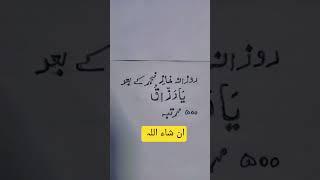 روزانہ نماز فجر کے بعد
یَا رَزَّاقُ
۵۰۰ مرتبہ
ان شاء اللہ